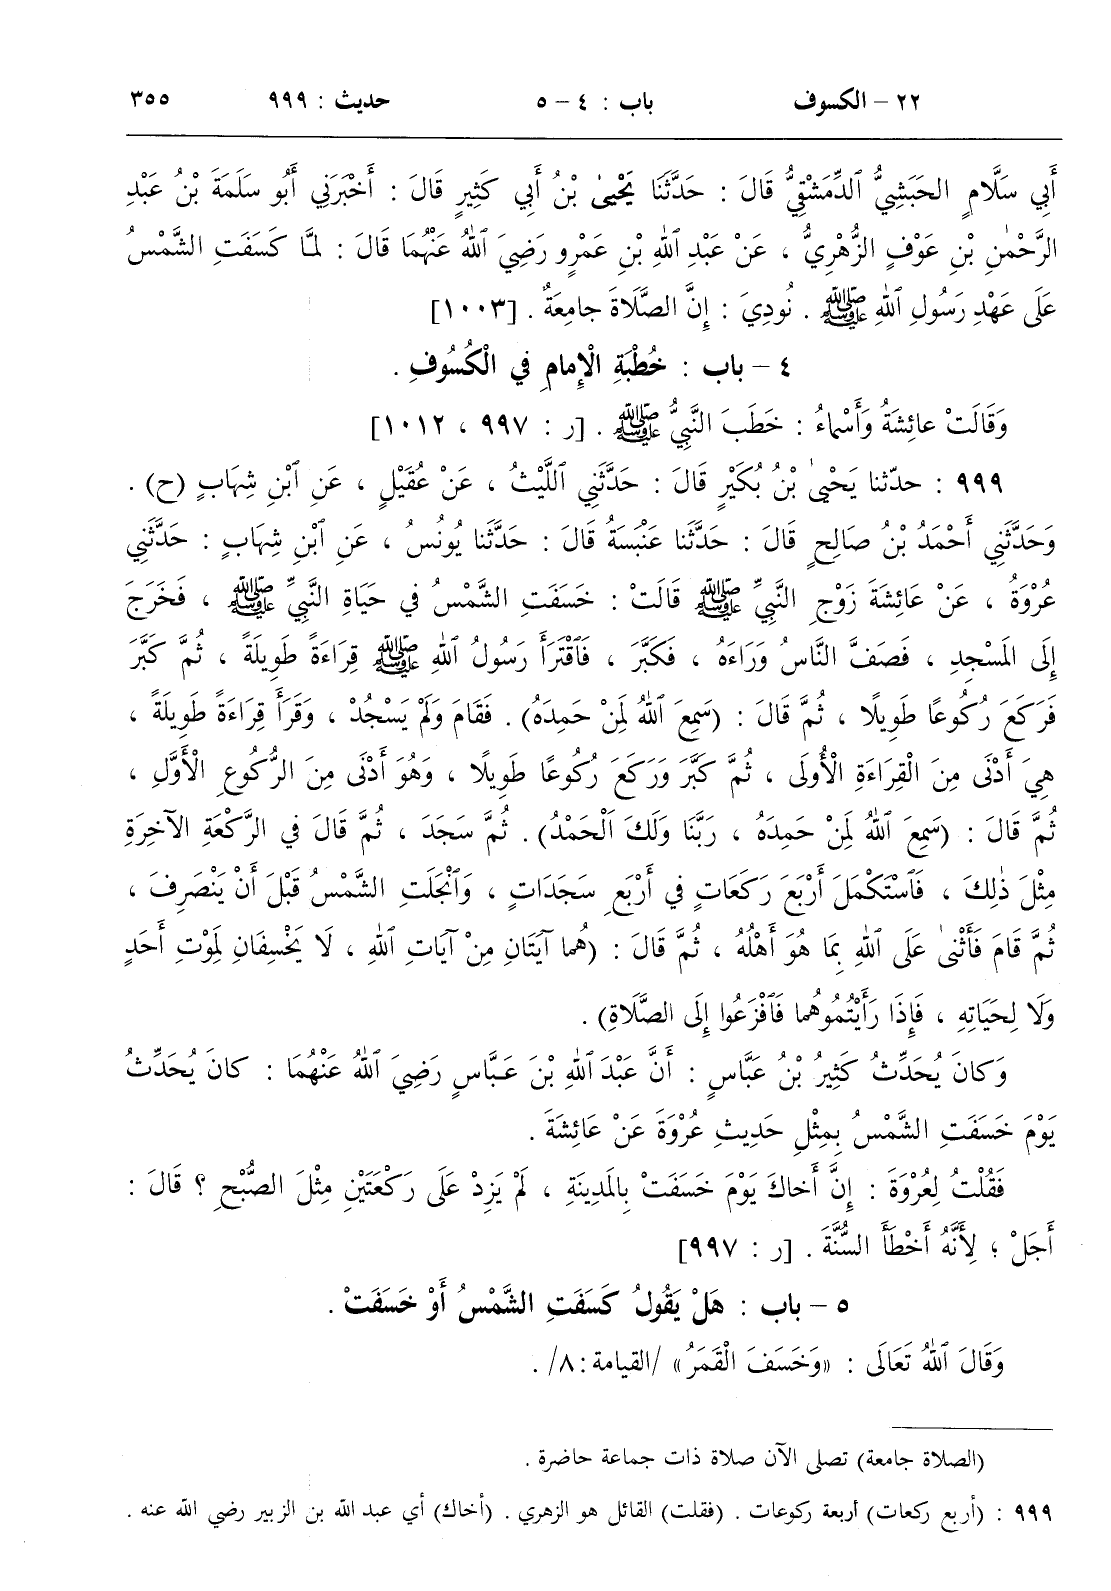 ٢٢ – الكسوف باب : ٤ – ٥ حديث : ٩٩٩ ٣٥٥
أَبِي سَلَّامٍ الحَبَشِيُّ ٱلدِّمَشْقِيُّ قَالَ : حَدَّثَنَا يَحْيىٰ بْنُ أَبِي كَثِيرٍ قَالَ : أَخْبَرَنِي أَبُو سَلَمَةَ بْنُ عَبْدِ
الرَّحْمٰنِ بْنِ عَوْفٍ الزُّهْرِيُّ ، عَنْ عَبْدِ ٱللهِ بْنِ عَمْرٍو رَضِيَ ٱللهُ عَنْهُمَا قَالَ : لمَّا كَسَفَتِ الشَّمْسُ
عَلَى عَهْدِ رَسُولِ ٱللهِ ﷺ . نُودِيَ : إِنَّ الصَّلَاةَ جامِعَةٌ . [١٠٠٣]
٤ – باب : خُطْبَةِ الْإِمامِ فِي الْكُسُوفِ .
وَقَالَتْ عائِشَةُ وَأَسْماءُ : خَطَبَ النَّبِيُّ ﷺ . [ر : ٩٩٧ ، ١٠١٢]
٩٩٩ : حدّثنا يَحْيىٰ بْنُ بُكَيْرٍ قَالَ : حَدَّثَنِي ٱللَّيْثُ ، عَنْ عُقَيْلٍ ، عَنِ ٱبْنِ شِهَابٍ (ح) .
وَحَدَّثَنِي أَحْمَدُ بْنُ صَالِحٍ قَالَ : حَدَّثَنَا عَنْبَسَةُ قَالَ : حَدَّثَنَا يُونُسُ ، عَنِ ٱبْنِ شِهَابٍ : حَدَّثَنِي
عُرْوَةُ ، عَنْ عَائِشَةَ زَوْجِ النَّبِيِّ ﷺ قَالَتْ : خَسَفَتِ الشَّمْسُ فِي حَيَاةِ النَّبِيِّ ﷺ ، فَخَرَجَ
إِلَى المَسْجِدِ ، فَصَفَّ النَّاسُ وَرَاءَهُ ، فَكَبَّرَ ، فَٱقْتَرَأَ رَسُولُ ٱللهِ ﷺ قِرَاءَةً طَوِيلَةً ، ثُمَّ كَبَّرَ
فَرَكَعَ رُكُوعًا طَوِيلًا ، ثُمَّ قَالَ : (سَمِعَ ٱللهُ لِمَنْ حَمِدَهُ) . فَقَامَ وَلَمْ يَسْجُدْ ، وَقَرَأَ قِرَاءَةً طَوِيلَةً ،
هِيَ أَدْنَى مِنَ الْقِرَاءَةِ الْأُولَى ، ثُمَّ كَبَّرَ وَرَكَعَ رُكُوعًا طَوِيلًا ، وَهُوَ أَدْنَى مِنَ الرُّكُوعِ الْأَوَّلِ ،
ثُمَّ قَالَ : (سَمِعَ ٱللهُ لِمَنْ حَمِدَهُ ، رَبَّنَا وَلَكَ الحَمْدُ) . ثُمَّ سَجَدَ ، ثُمَّ قَالَ فِي الرَّكْعَةِ الآخِرَةِ
مِثْلَ ذٰلِكَ ، فَٱسْتَكْمَلَ أَرْبَعَ رَكَعَاتٍ فِي أَرْبَعِ سَجَدَاتٍ ، وَٱنْجَلَتِ الشَّمْسُ قَبْلَ أَنْ يَنْصَرِفَ ،
ثُمَّ قَامَ فَأَثْنىٰ عَلَى ٱللهِ بِمَا هُوَ أَهْلُهُ ، ثُمَّ قَالَ : (هُما آيَتَانِ مِنْ آيَاتِ ٱللهِ ، لَا يَخْسِفَانِ لِمَوْتِ أَحَدٍ
وَلَا لِحَيَاتِهِ ، فَإِذَا رَأَيْتُمُوهُما فَٱفْزَعُوا إِلَى الصَّلَاةِ) .
وَكانَ يُحَدِّثُ كَثِيرُ بْنُ عَبَّاسٍ : أَنَّ عَبْدَ ٱللهِ بْنَ عَبَّاسٍ رَضِيَ ٱللهُ عَنْهُمَا : كانَ يُحَدِّثُ
يَوْمَ خَسَفَتِ الشَّمْسُ بِمِثْلِ حَدِيثِ عُرْوَةَ عَنْ عَائِشَةَ .
فَقُلْتُ لِعُرْوَةَ : إِنَّ أَخاكَ يَوْمَ خَسَفَتْ بِالمَدِينَةِ ، لَمْ يَزِدْ عَلَى رَكْعَتَيْنِ مِثْلَ الصُّبْحِ ؟ قَالَ :
أَجَلْ ؛ لِأَنَّهُ أَخْطَأَ السُّنَّةَ . [ر : ٩٩٧]
٥ – باب : هَلْ يَقُولُ كَسَفَتِ الشَّمْسُ أَوْ خَسَفَتْ .
وَقَالَ ٱللهُ تَعَالَى : «وَخَسَفَ الْقَمَرُ» /القيامة: ٨/ .
(الصلاة جامعة) تصلى الآن صلاة ذات جماعة حاضرة .
٩٩٩ : (أربع ركعات) أربعة ركوعات . (فقلت) القائل هو الزهري . (أخاك) أي عبد الله بن الزبير رضي الله عنه .